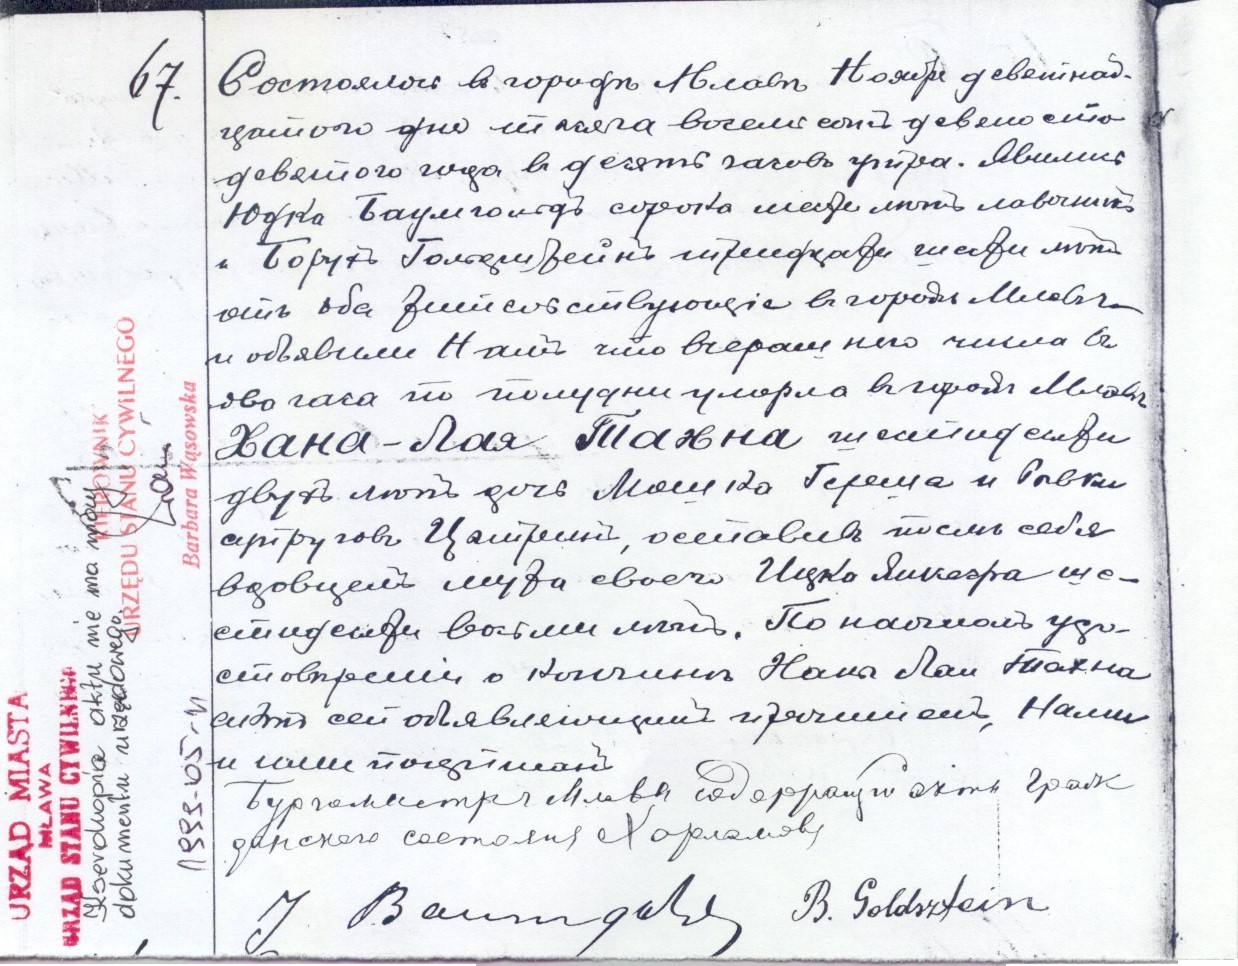 67.
Состоялось въ городѣ Млавѣ Ноября девятнад-
цатого дня тысяча восемьсотъ девяносто
девятого года въ десять часовъ утра. Явились
Юдка Баумгольдъ сорока шести лѣтъ лавочникъ
и Борухъ Гольдштейнъ тридцати шести лѣтъ
отъ оба жительствующіе въ городѣ Млавѣ
и объявили Намъ что вчерашнего числа въ
два часа по полудни умерла въ городѣ Млавѣ
Хана-Лая Тахна шестидесяти
двухъ лѣтъ дочь Мошка Герша и Ривки
супруговъ, оставивъ послѣ себя
вдовцемъ мужа своего Ицка ше-
стидесяти восьми лѣтъ. По наочномъ удо-
стовѣреніи о кончинѣ Ханы Лаи Тахна
актъ сей объявляющимъ прочитанъ, Нами
и ими подписанъ
Бургомистръ Млавы Содержащій акты Граж
данского состоянія Харламовъ
J. B. Goldsztein
URZĄD MIASTA
MŁAWA
URZĄD STANU CYWILNEGO
Kserokopia aktu nie ma mocy
dokumentu urzędowego.
KIEROWNIK
URZĘDU STANU CYWILNEGO
Barbara Wąsowska
1999-05-11